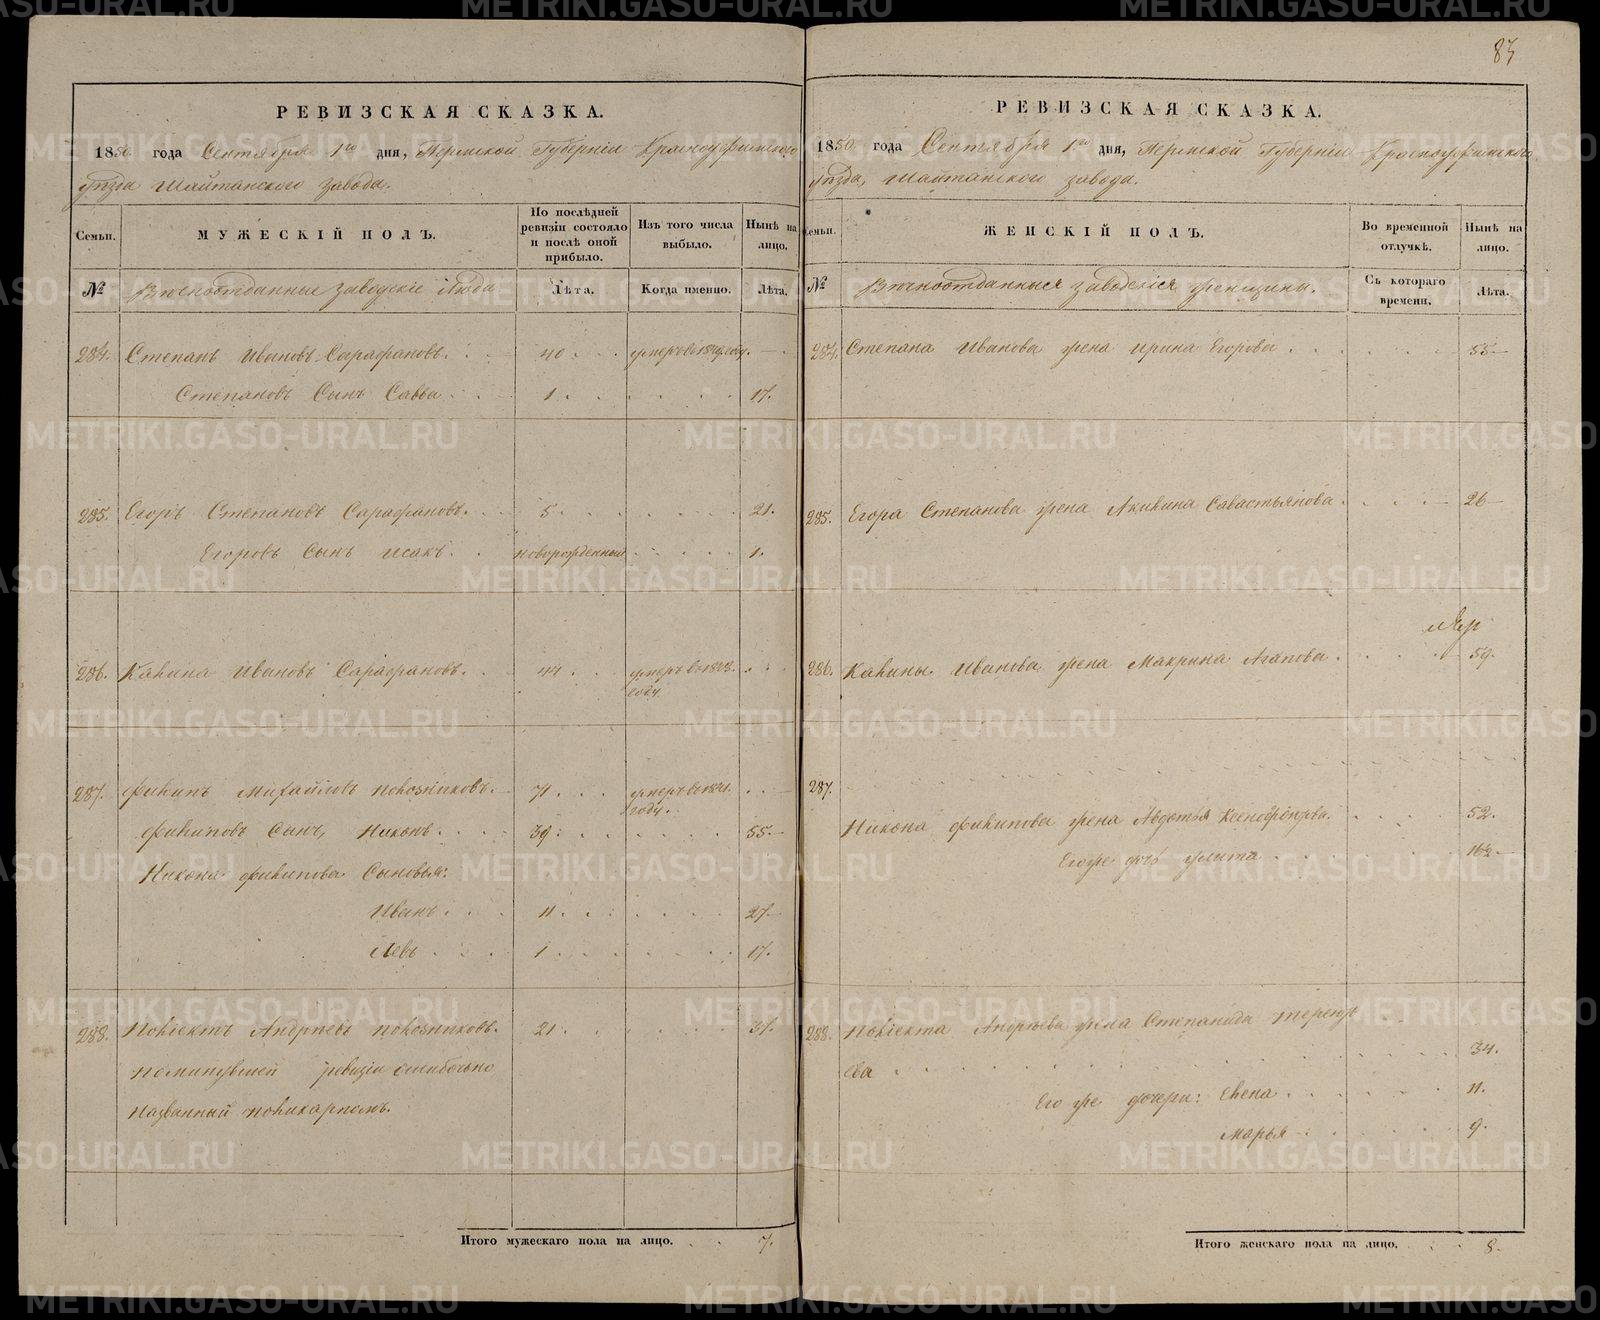 83
РЕВИЗСКАЯ СКАЗКА.
1850 года Сентября 1го дня, Пермской Губерніи Красноуфимскаго
уѣзда Шайтанского завода.
Семьи.
МУЖЕСКІЙ ПОЛЪ.
По послѣдней
ревизіи состояло
и послѣ оной
прибыло.
Изъ того числа
выбыло.
Нынѣ на
лицо.
№
Вѣчноотданные заводскіе Люди
Лѣта.
Когда именно.
Лѣта.
284. Степанъ Ивановъ Сарафановъ. 40 умеръ въ году. —
Степановъ Сынъ Савва 1 17.
285. Егоръ Степановъ Сарафановъ. 5 21.
Егоровъ Сынъ Исакъ. новорожденный 1.
286. Калина Ивановъ Сарафановъ. 44 умеръ въ
году
287. Филипъ Михайловъ Полозниковъ. 71 умеръ въ
году.
Филиповъ Сынъ, Никонъ. 39. 55—
Никона Филипова Сыновья:
Иванъ. 11. 27—
Левъ 1 17.
288. Полиектъ Андреевъ Полозниковъ. 21. 37.
по минувшей ревизіи ошибочно
названный Поликарпомъ.
Итого мужескаго пола на лицо. 7.
РЕВИЗСКАЯ СКАЗКА.
1850 года Сентября 1го дня, Пермской Губерніи Красноуфимскаго
уѣзда, Шайтанского завода.
Семьи.
ЖЕНСКІЙ ПОЛЪ.
Во временной
отлучкѣ.
Нынѣ на
лицо.
№
Вѣчноотданныя заводскія женщины.
Съ котораго
времени.
Лѣта.
284. Степана Иванова жена Ирина Егорова 55—
285. Егора Степанова жена Акилина Савастьянова. 26—
286. Калины Иванова жена Макрина Агапова. 59.
287.
Никона Филипова жена Авдотья Ксенофонтова. 52.
Егоже дочь Улита 16
288. Полиекта Андреева жена Степанида Терентье
ева 34.
Его же дочери: Елена 11.
Марья 9.
Итого женскаго пола на лицо. 8.
METRIKI.GASO-URAL.RU